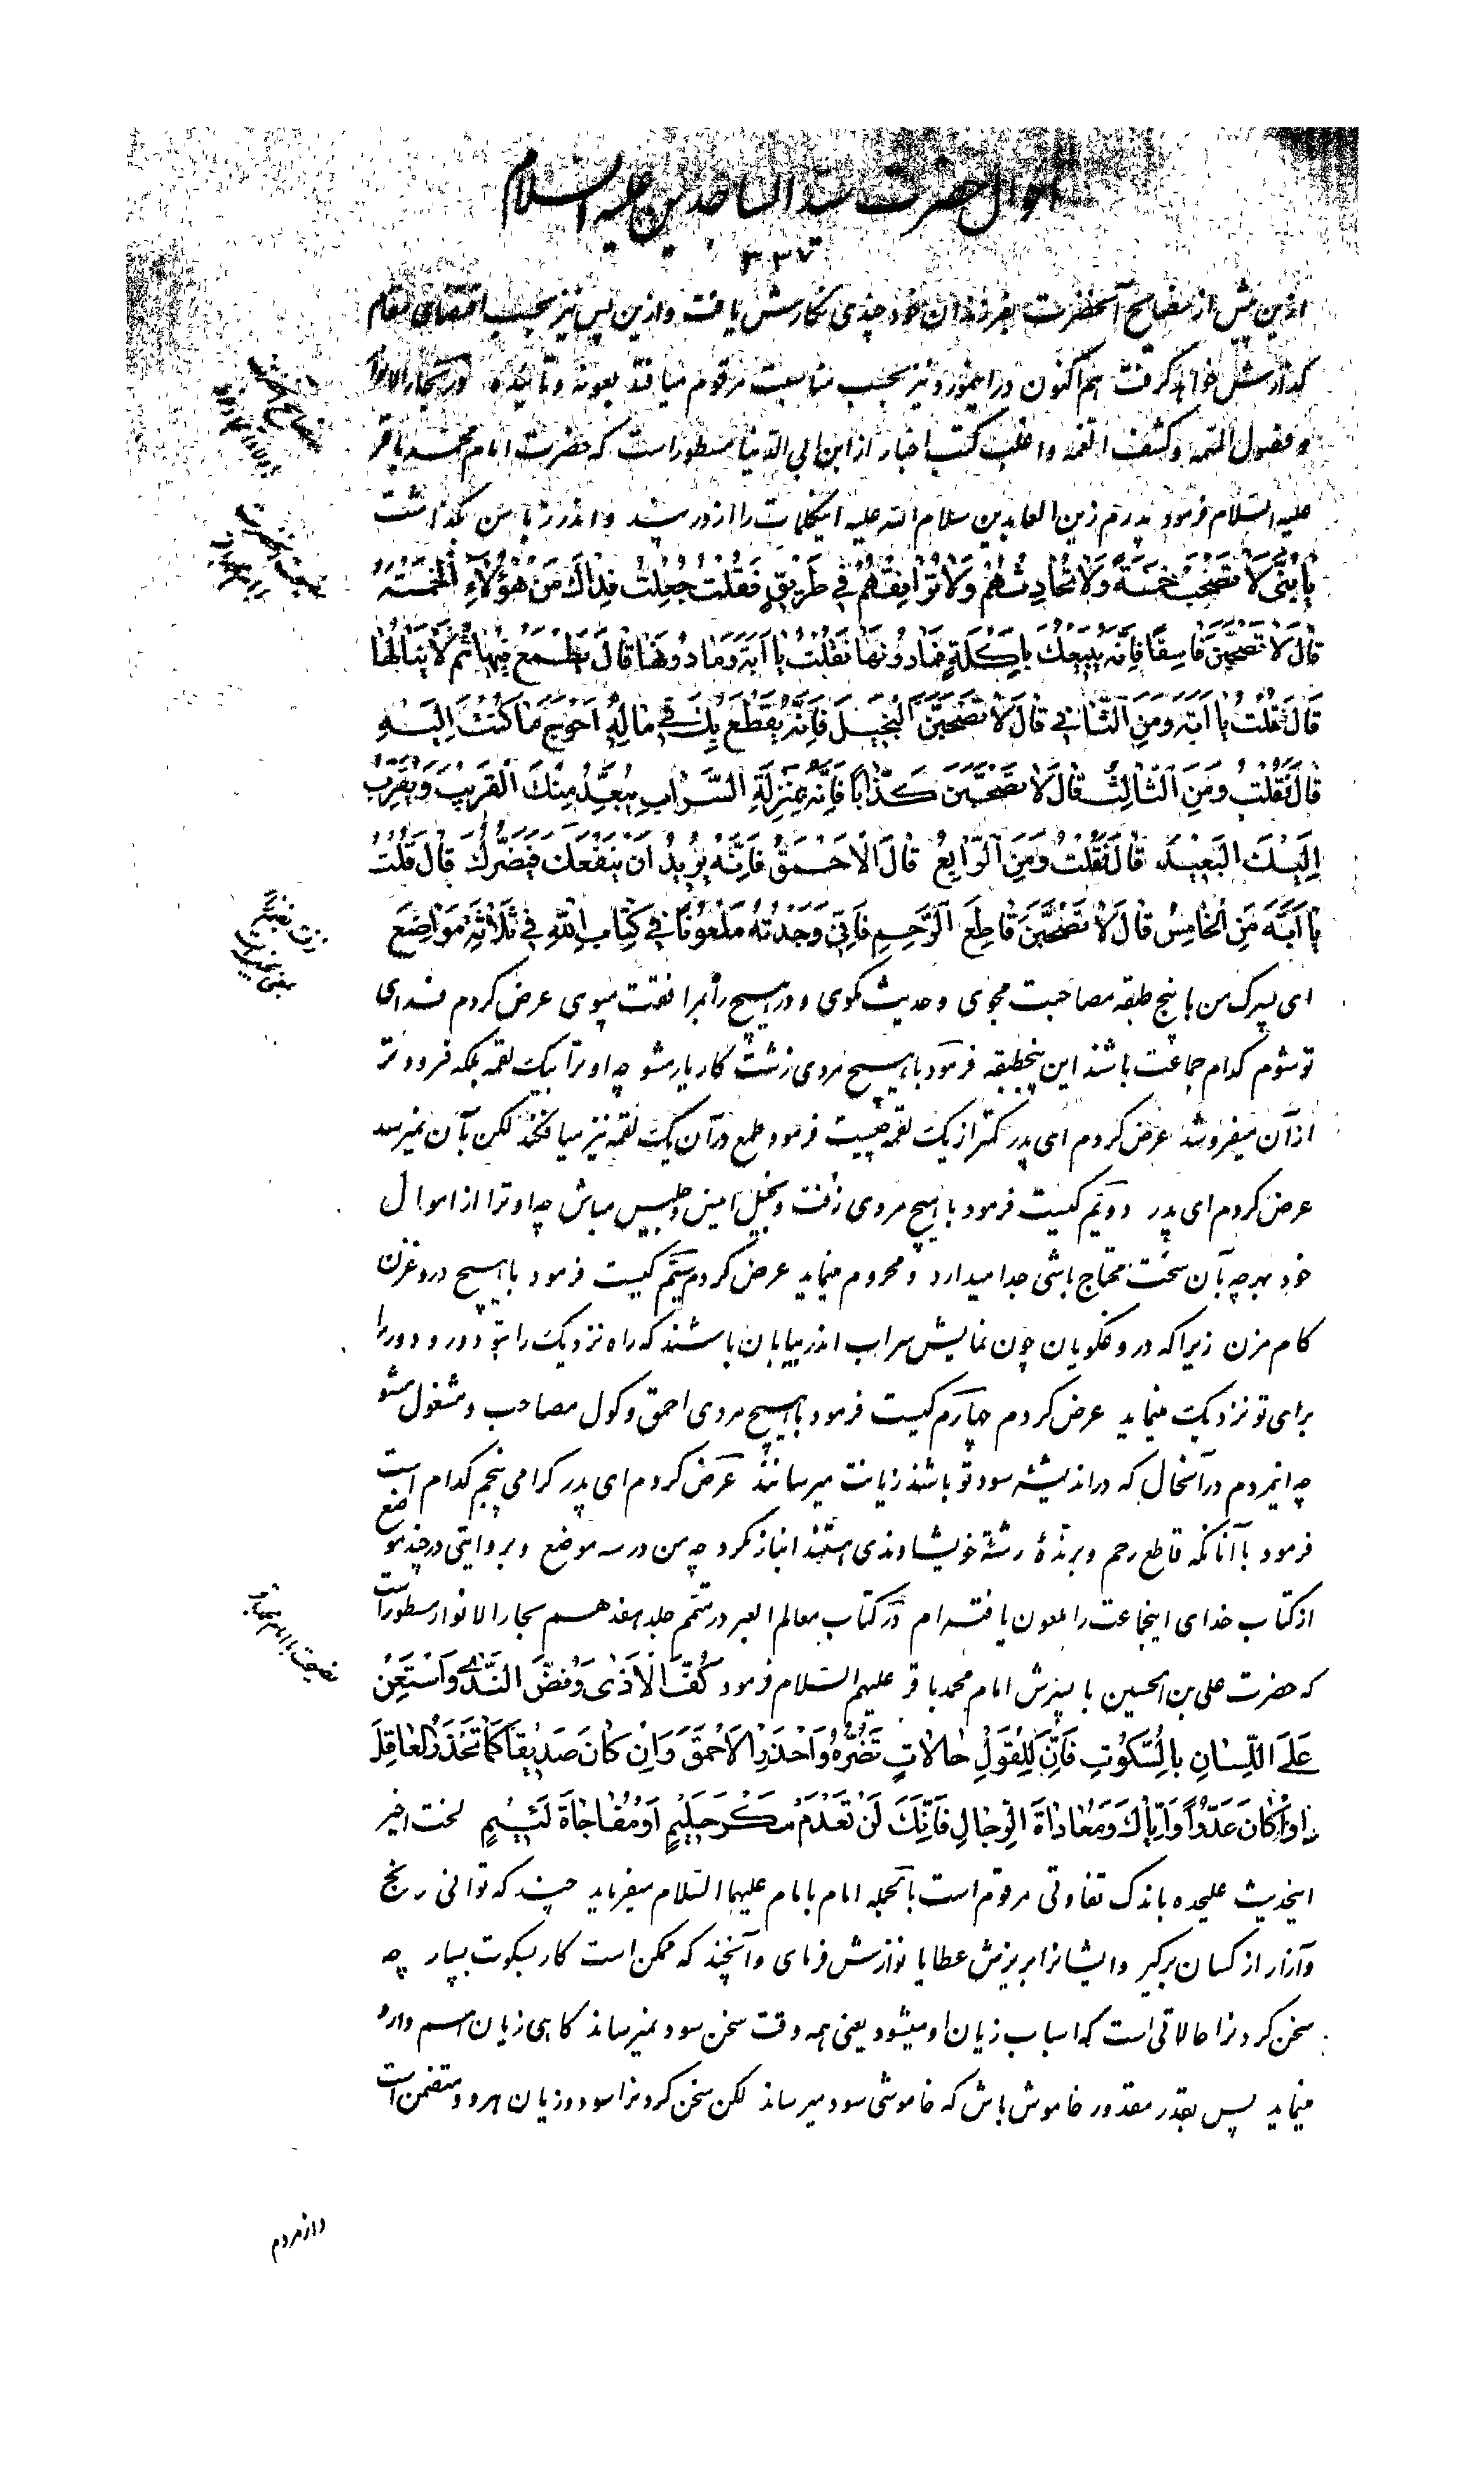 احوال حضرت سید الساجدین علیه السلام
۳۳۷
ازین پیش از نصایح آنحضرت بفرزندان خود چندی نگارش یافت و ازین پس نیز بحسب اقتضای مقام
گذارش خواهد گرفت هم اکنون در اینمورد نیز بحسب مناسبت مرقوم میافتد بعونه و تأییده در بحار الانوار
و فصول المهمه و کشف الغمه و اغلب کتب اخبار از ابن ابی الدنیا مسطور است که حضرت امام محمد باقر
علیه السلام فرمود پدرم زین العابدین سلام الله علیه اینکلمات را از در پند و اندرز با من بگذاشت
یا بُنَیَّ لا تَصْحَبْ خَمْسَةً وَلا تُحادِثْهُمْ وَلا تُرافِقْهُمْ فی طَریقٍ فَقُلْتُ جُعِلْتُ فِداکَ مَنْ هؤُلآءِ الْخَمْسَةُ
قالَ لا تَصْحَبَنَّ فاسِقاً فَاِنَّهُ یَبیعُکَ بِاَکْلَةٍ فَمادُونَها فَقُلْتُ یا اَبَةِ وَمادُونَها قالَ یَطْمَعُ فیها ثُمَّ لا یَنالُها
قالَ فَقُلْتُ یا اَبَةِ وَمَنِ الثّانی قالَ لا تَصْحَبَنَّ الْبَخیلَ فَاِنَّهُ یَقْطَعُ بِکَ فی مالِهِ اَحْوَجَ ما کُنْتَ اِلَیْهِ
قالَ فَقُلْتُ وَمَنِ الثّالِثُ قالَ لا تَصْحَبَنَّ کَذّاباً فَاِنَّهُ بِمَنْزِلَةِ السَّرابِ یُبَعِّدُ مِنْکَ الْقَریبَ وَیُقَرِّبُ
اِلَیْکَ الْبَعیدَ قالَ فَقُلْتُ وَمَنِ الرّابِعُ قالَ الْاَحْمَقُ فَاِنَّهُ یُریدُ اَنْ یَنْفَعَکَ فَیَضُرُّکَ قالَ قُلْتُ
یا اَبَةِ مَنِ الْخامِسُ قالَ لا تَصْحَبَنَّ قاطِعَ الرَّحِمِ فَاِنّی وَجَدْتُهُ مَلْعُوناً فی کِتابِ اللهِ فی ثَلاثَةِ مَواضِعَ
ای پسرک من با پنج طبقه مصاحبت مجوی و حدیث مگوی و در هیچ راه مرافقت مپوی عرض کردم فدای
تو شوم کدام جماعت باشند این پنجطبقه فرمود با هیچ مردی زشت کار یار مشو چه او ترا بیک لقمه بلکه فرودتر
از آن میفروشد عرض کردم ای پدر کمتر از یک لقمه چیست فرمود طمع در آن یک لقمه نیز میافکند لکن بآن نمیرسد
عرض کردم ای پدر دویم کیست فرمود با هیچ مردی زفت و بخیل امین و جلیس مباش چه او ترا از اموال
خود بهرچه بآن سخت محتاج باشی جدا میدارد و محروم مینماید عرض کردم سیّم کیست فرمود با هیچ دروغزن
کام مزن زیرا که دروغگویان چون نمایش سراب اندر بیابان باشند که راه نزدیک را بتو دور و دور را
برای تو نزدیک مینماید عرض کردم چهارم کیست فرمود با هیچ مردی احمق و کول مصاحب و مشغول مشو
چه اینمردم در آنحال که در اندیشه سود تو باشند زیانت میرسانند عرض کردم ای پدر گرامی پنجم کدام است
فرمود با آنانکه قاطع رحم و برندهٔ رشتهٔ خویشاوندی هستند انباز مگرد چه من در سه موضع و بروایتی در چند مواضع
از کتاب خدای اینجماعت را ملعون یافته‌ام در کتاب معالم العبر در متمم جلد هفدهم بحار الانوار مسطور است
که حضرت علی بن الحسین با پسرش امام محمد باقر علیهم السلام فرمود کُفَّ الْاَذی وَفُضَّ النَّدی وَاسْتَعِنْ
عَلَی اللِّسانِ بِالسُّکُوتِ فَاِنَّ لِلْقَوْلِ حالاتٍ تَضُرُّهُ وَاحْذَرِ الْاَحْمَقَ وَاِنْ کانَ صَدیقاً کَما تَحْذَرُ الْعاقِلَ
اِذا کانَ عَدُوّاً وَاِیّاکَ وَمُعاداةَ الرِّجالِ فَاِنَّکَ لَنْ تَعْدَمَ مَکْرَ حَلیمٍ اَوْ مُفاجاةَ لَئیمٍ لخت اخیر
اینحدیث علیحده باندک تفاوتی مرقوم است بالجمله امام بامام علیهما السلام میفرماید چند که توانی رنج
و آزار از کسان برگیر و ایشانرا بریزش عطایا نوازش فرمای و آنچند که ممکن است کار بسکوت بسپار چه
سخن کردنرا حالاتی است که اسباب زیان او میشود یعنی همه وقت سخن سود نمیرساند گاهی زیان هم وارد
مینماید پس بقدر مقدور خاموش باش که خاموشی سود میرساند لکن سخن کردنرا سود و زیان هردو متضمن است
و از مردم